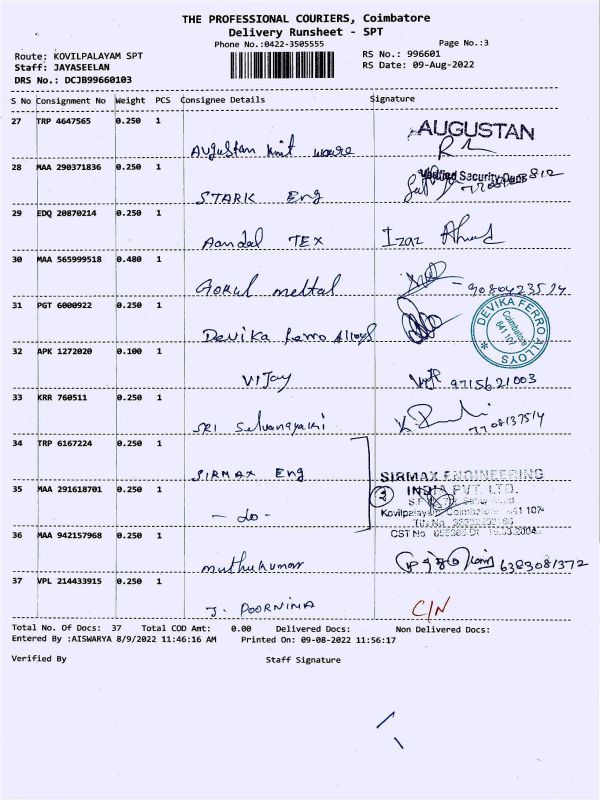 THE PROFESSIONAL COURIERS, Coimbatore
Delivery Runsheet - SPT
Phone No.:0422-3505555
Page No.:3
Route: KOVILPALAYAM SPT
Staff: JAYASEELAN
DRS No.: DCJB99660103
RS No.: 996601
RS Date: 09-Aug-2022
S No Consignment No Weight PCS Consignee Details Signature
27 TRP 4647565 0.250 1
Augustan knit weare AUGUSTAN
28 MAA 290371836 0.250 1
STARK Eng Security
29 EDQ 20870214 0.250 1
Aandal TEX Izaz Ahmed
30 MAA 565999518 0.480 1
Gokul mettal 9080423574
31 PGT 6000922 0.250 1
Devika ferro Alloys
DEVIKA FERRO ALLOYS
Coimbatore
641 107
32 APK 1272020 0.100 1
Vijay 9715621003
33 KRR 760511 0.250 1
SRI Selvanayaki 7708137514
34 TRP 6167224 0.250 1
SIRMAX Eng SIRMAX ENGINEERING
35 MAA 291618701 0.250 1
2 INDIA PVT. LTD.
- do - Kovilpalayam Coimbatore 641 107
CST No
36 MAA 942157968 0.250 1
muthukumar 6383081372
37 VPL 214433915 0.250 1
J. POORNIMA C/N
Total No. Of Docs: 37 Total COD Amt: 0.00 Delivered Docs: Non Delivered Docs:
Entered By :AISWARYA 8/9/2022 11:46:16 AM Printed On: 09-08-2022 11:56:17
Verified By Staff Signature